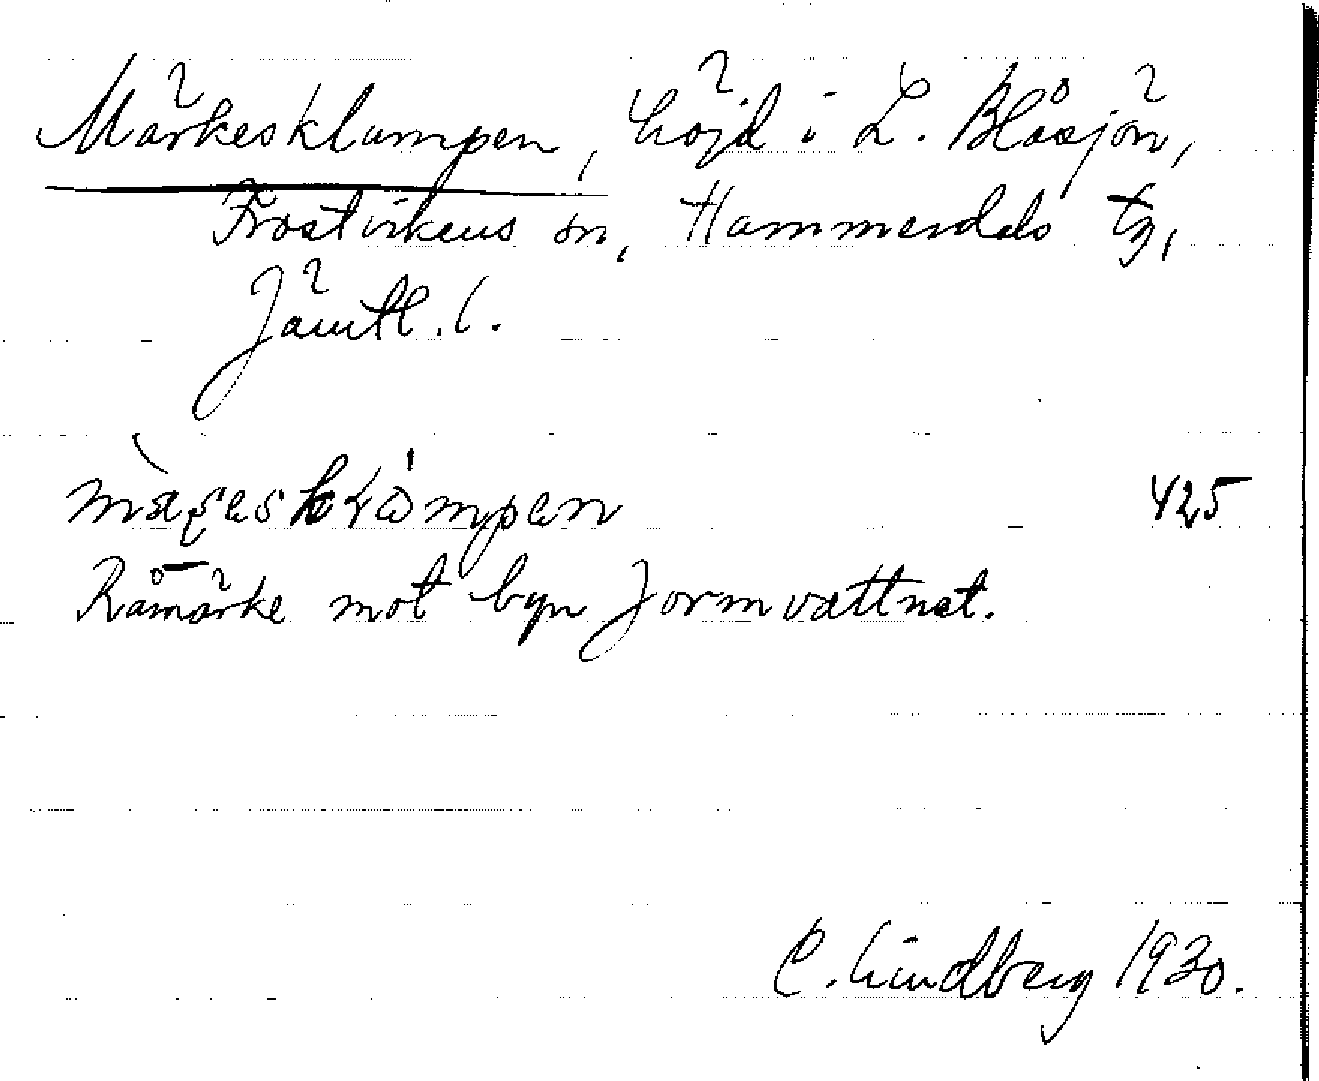 Märkesklumpen, höjd i L. Blåsjön,
Frostvikens sn, Hammerdals tg,
Jämtl. l.
425
Råmärke mot byn Jormvattnet.
C. Lindberg 1930.